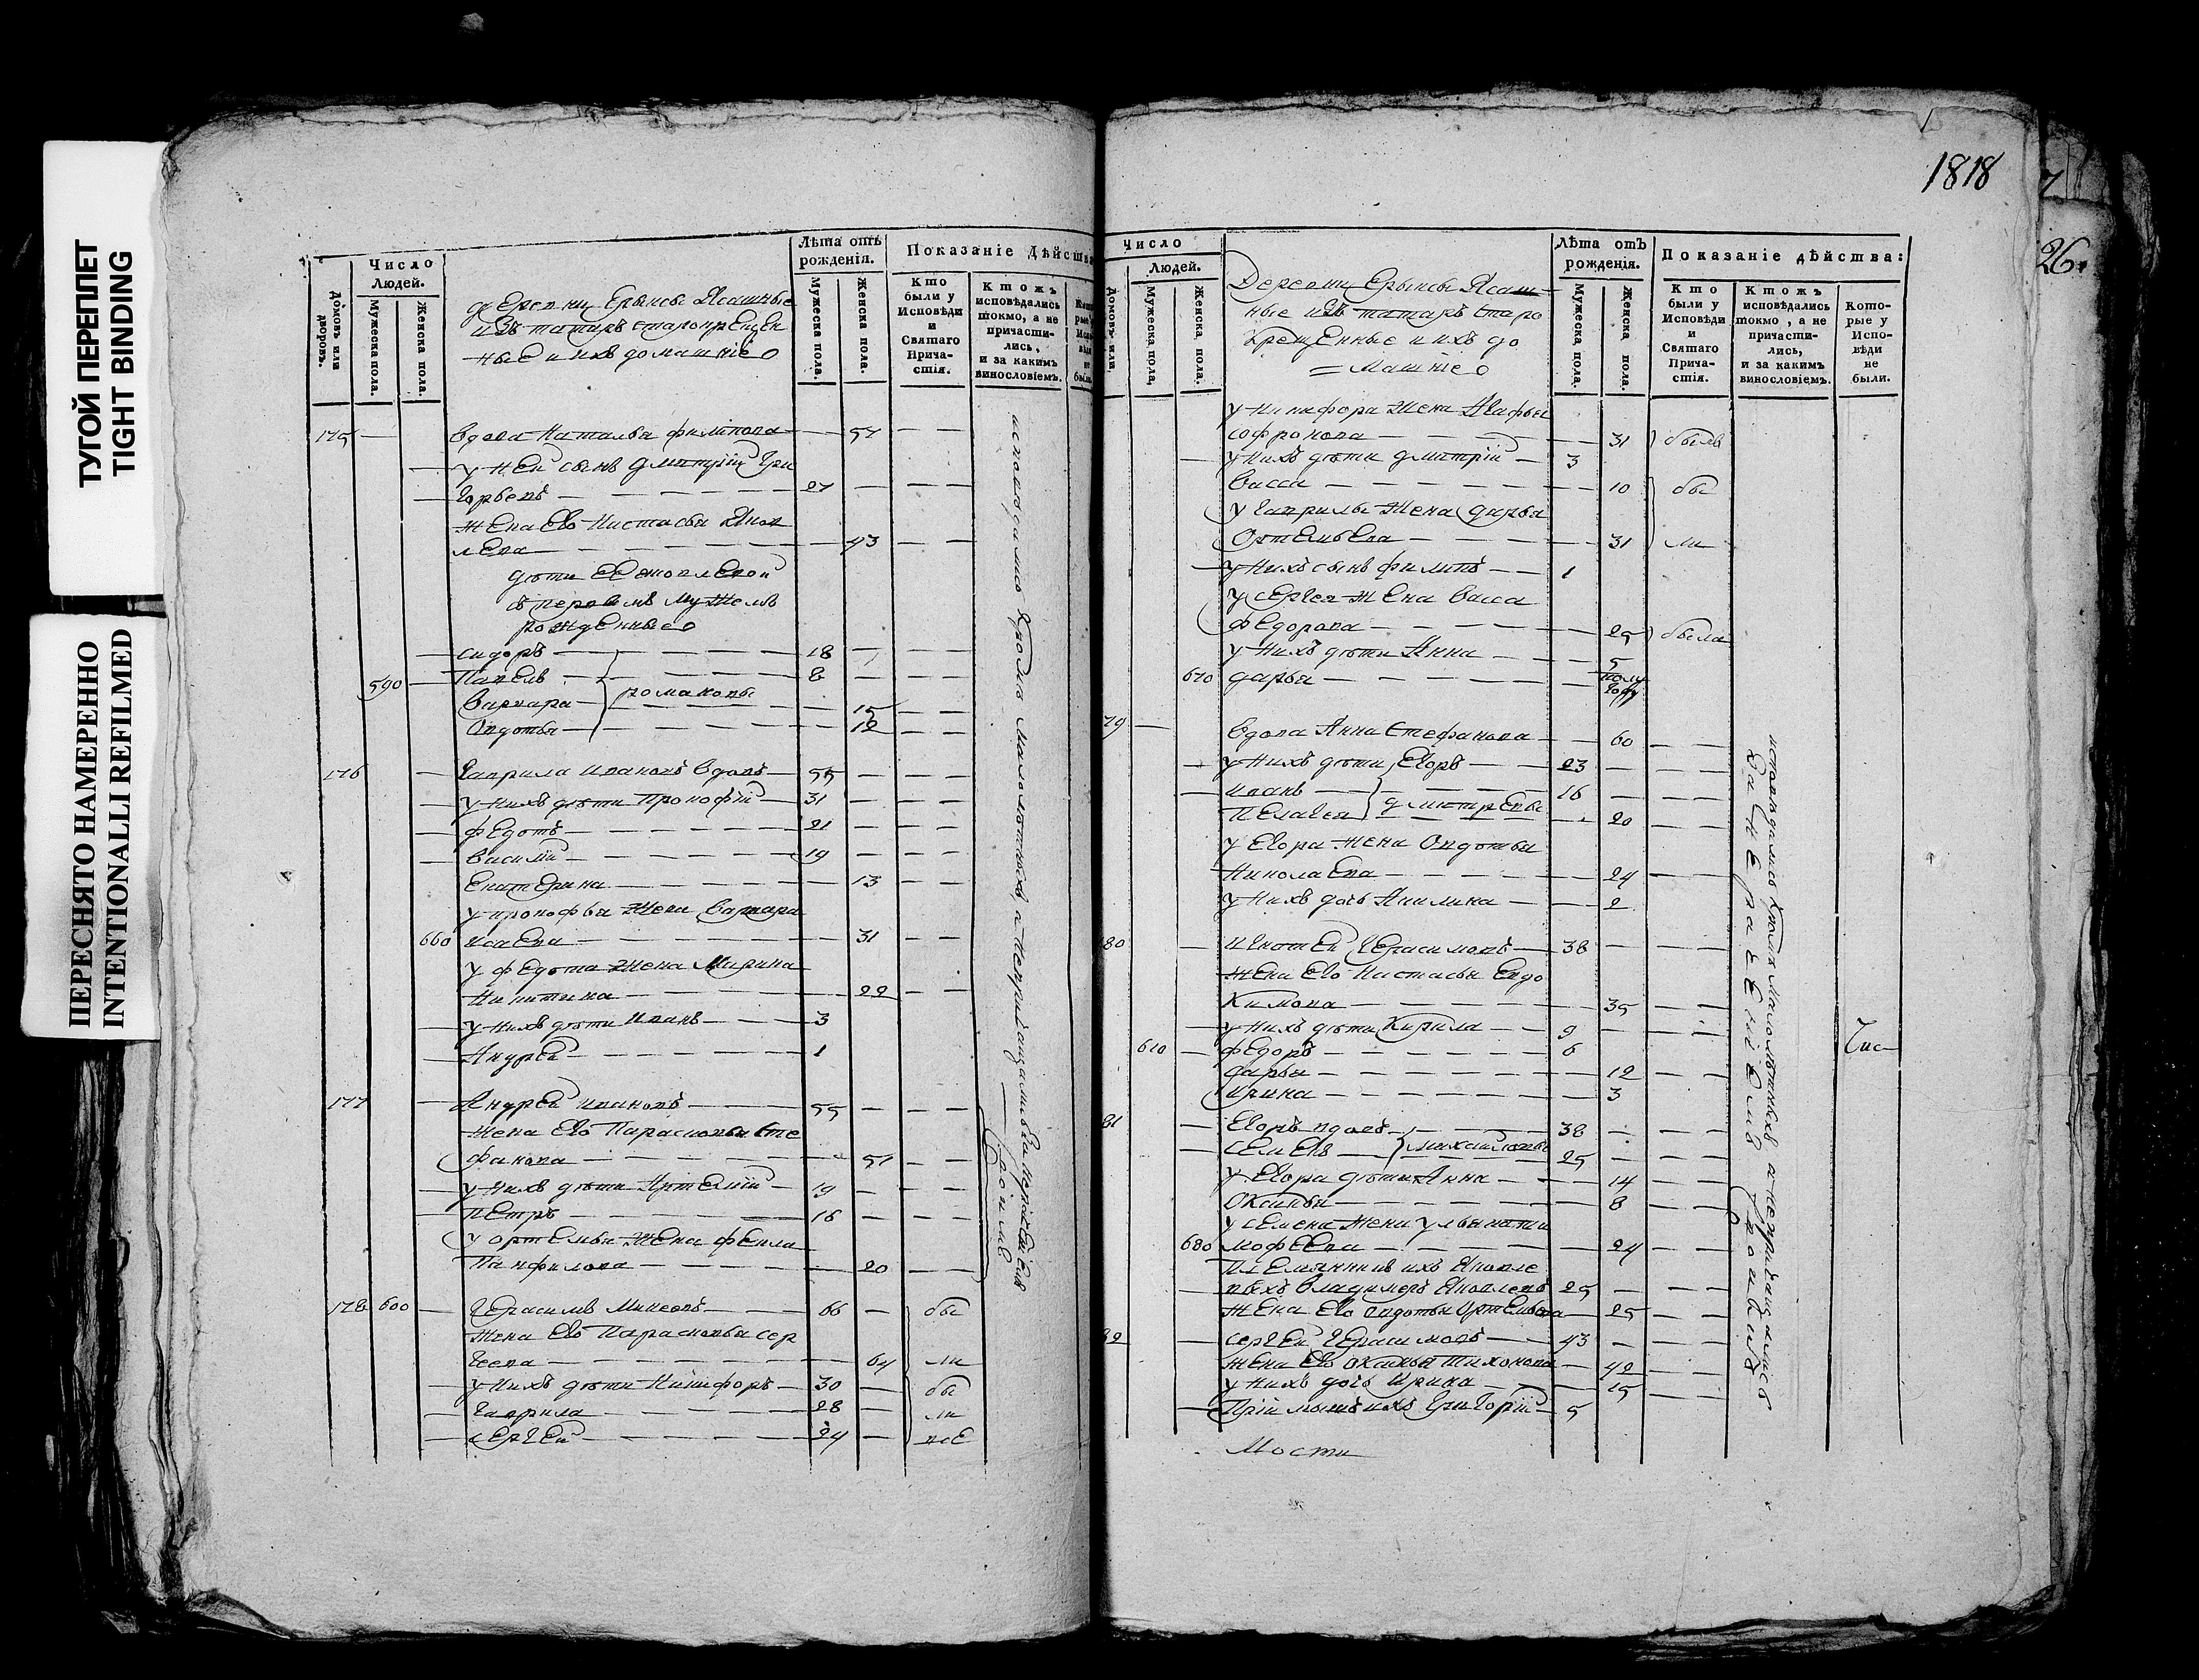 ТУГОЙ ПЕРЕПЛЕТ
TIGHT BINDING
ПЕРЕСНЯТО НАМЕРЕННО
INTENTIONALLI REFILMED
Домовъ или дворовъ.
Число Людей.
Мужеска пола.
Женска пола.
деревни Ерыксы Ясашные
изъ татаръ старокрещен
ные и ихъ домашніе
Лѣта отъ рожденія.
Мужеска пола.
Женска пола.
Показаніе Дѣйства
Кто были у Исповѣди и Святаго Причастія.
Ктожъ исповѣдались токмо, а не причастились, и за какимъ винословіемъ.
175 вдова Наталья филипова 57
у неи сынъ дмитріи Гри
горьевъ 27
жена Ево Настасья Яков
лева 43
дѣти ЕЕ
съ первымъ мужемъ
рожденные
сидоръ 18
590 Павелъ 8
Варвара романовы 15
Овдотья 12
176 Гаврила ивановъ вдовъ 55
у нихъ дѣти Прокофіи 31
федотъ 21
василіи 19
Екатерина 13
у прокофья жена Варвара
660 исаева 31
у федота жена Марина
Никитина 22
у нихъ дѣти иванъ 3
Андреи 1
177 Андреи ивановъ 55
жена Ево Парасковья Сте
фанова 57
у нихъ дѣти Артемии 19
Петръ 16
у ортемья жена фекла
Панфилова 20
178 600 Герасимъ Минеевъ 66 бы
жена Ево Парасковья сер
геева 64 ли
у нихъ дѣти Никифоръ 30 бы
Гаврила 28 ли
сергеи 24 все
исповѣдались кромѣ малолѣтныхъ а непричащались за нераченіемъ
своимъ
1818
26.
Число Людей.
Домовъ или
Мужеска пола,
Женска пола.
Деревни Ерыксы Ясаш
ные изъ татаръ старо
крещенные и ихъ до
= машніе
Лѣта отъ рожденія.
Мужеска пола.
Женска пола.
Показаніе дѣйства:
Кто были у Исповѣди и Святаго Причастія.
Ктожъ исповѣдались токмо, а не причастились, и за какимъ винословіемъ.
Которые у Исповѣди не были.
у никифора жена Агафья
софронова 31 были
у нихъ дѣти дмитріи 3
васса 10 бы
у гаврилы жена дарья
Ортемьева 31 ли
у нихъ сынъ филипъ 1
у сергея жена васса
федорова 25 была
у нихъ дѣти Анна 5
670 дарья полу году
79 вдова Анна Стефанова 60
у нихъ дѣти Егоръ 23
иванъ 16
Пелагея дмитревы 20
у Егора жена Овдотья
Николаева 24
у нихъ дочь Акилина 2
80 Игнатеи Герасимовъ 38
жена Ево Настасья Евдо
кимова 35
у нихъ дѣти Кирила 9
610 федоръ 6
дарья 12
ирина 3
81 Егоръ вдовъ 38
семенъ михаиловы 25
у Егора дѣти Анна 14
Оксинья 8
у семена жена ульяна ти
680 мофеева 24
племянникъ ихъ Яковле
выхъ владимеръ Яковлевъ 25
жена Ево овдотья Ортемьева 25
82 сергеи Герасимовъ 43
жена Ево оксинья тихонова 42
у нихъ дочь ирина 15
Пріимышъ ихъ Григоріи 5
Мости
исповѣдались кромѣ малолѣтныхъ а непричащались
за нераченіемъ своимъ
Чис